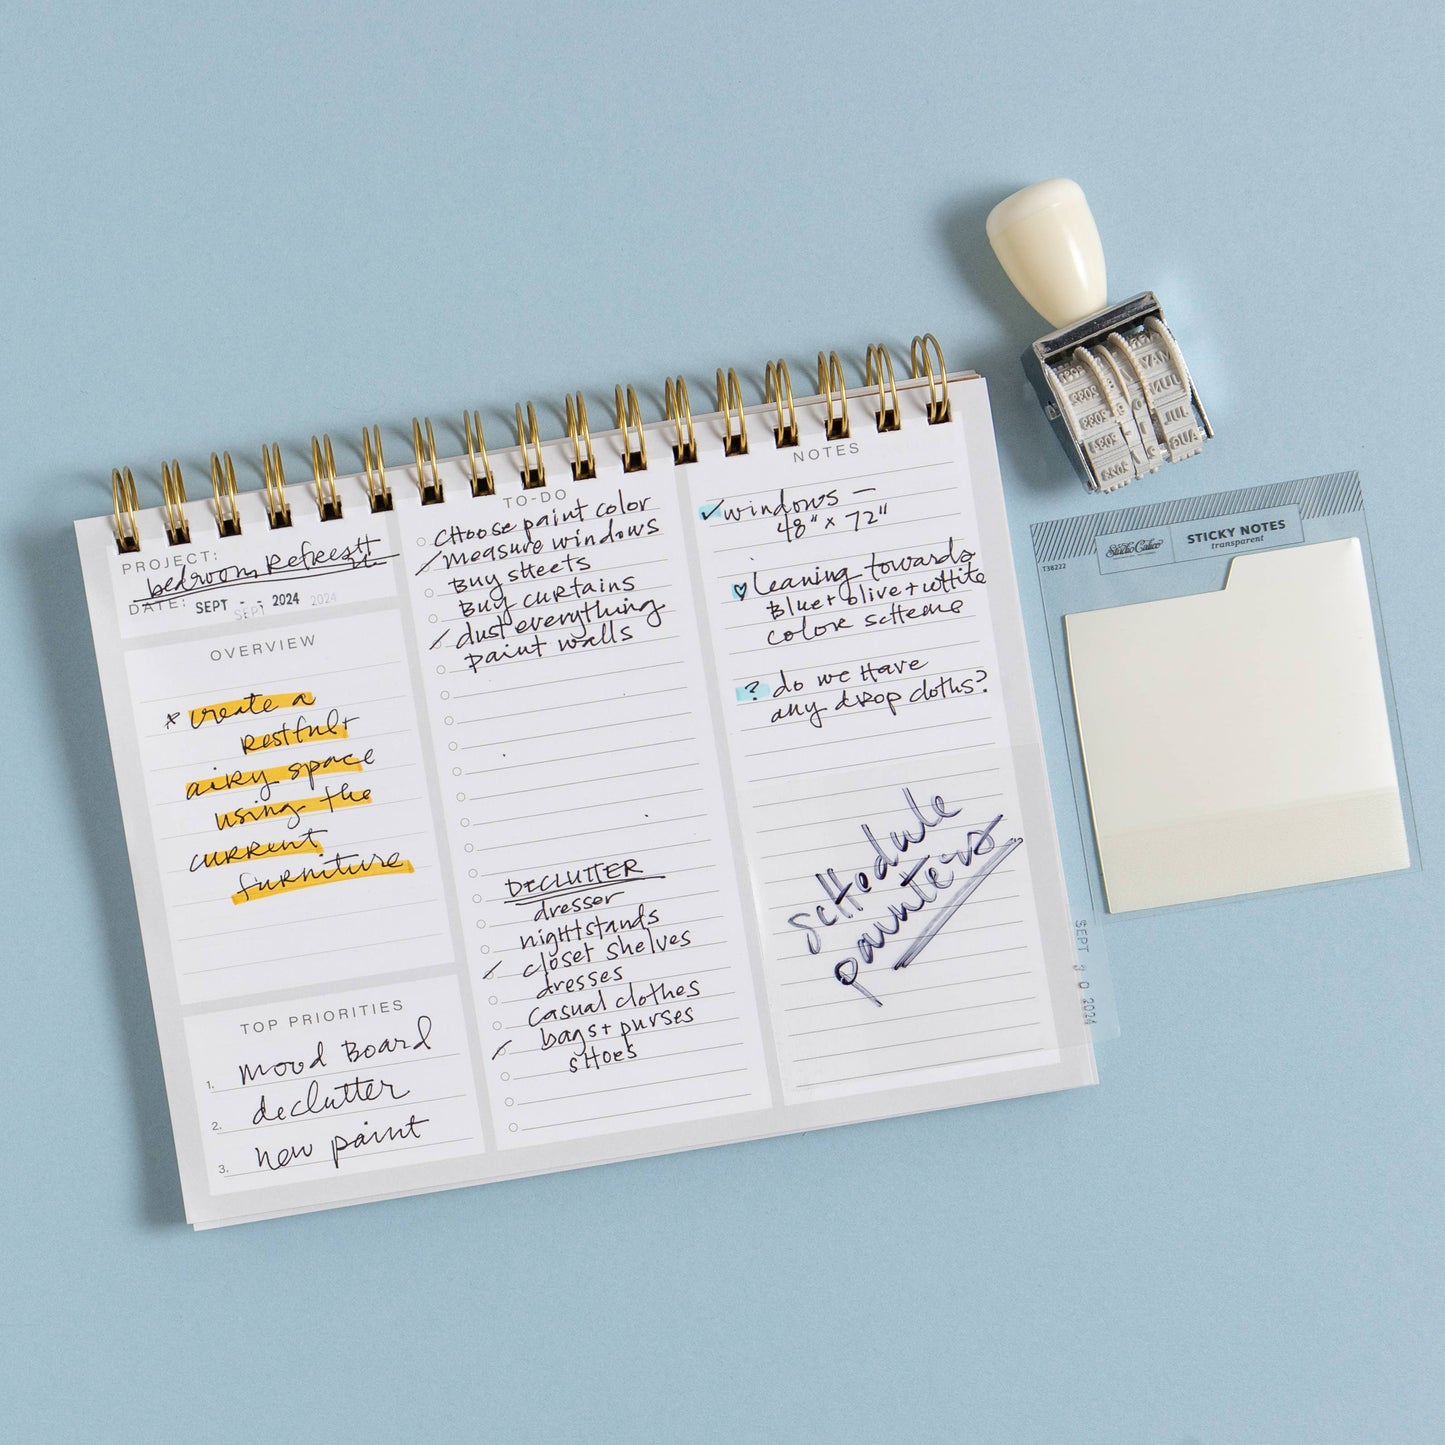 PROJECT:
bedroom Refresh
DATE: SEPT - - 2024
SEPT 2024
OVERVIEW
* create a
restful +
airy space
using the
current
furniture
TOP PRIORITIES
1. mood Board
2. declutter
3. new paint
TO-DO
choose paint color
measure windows
Buy sheets
Buy curtains
dust everything
paint walls
DECLUTTER
dresser
nightstands
closet shelves
dresses
casual clothes
bags + purses
shoes
NOTES
✓ windows —
48" x 72"
♡ leaning towards
Blue + olive + white
color scheme
? do we have
any drop cloths?
schedule
painters
SEPT 30 2024
Studio Calico
STICKY NOTES
transparent
T36222
MAY
JUN
JUL
AUG